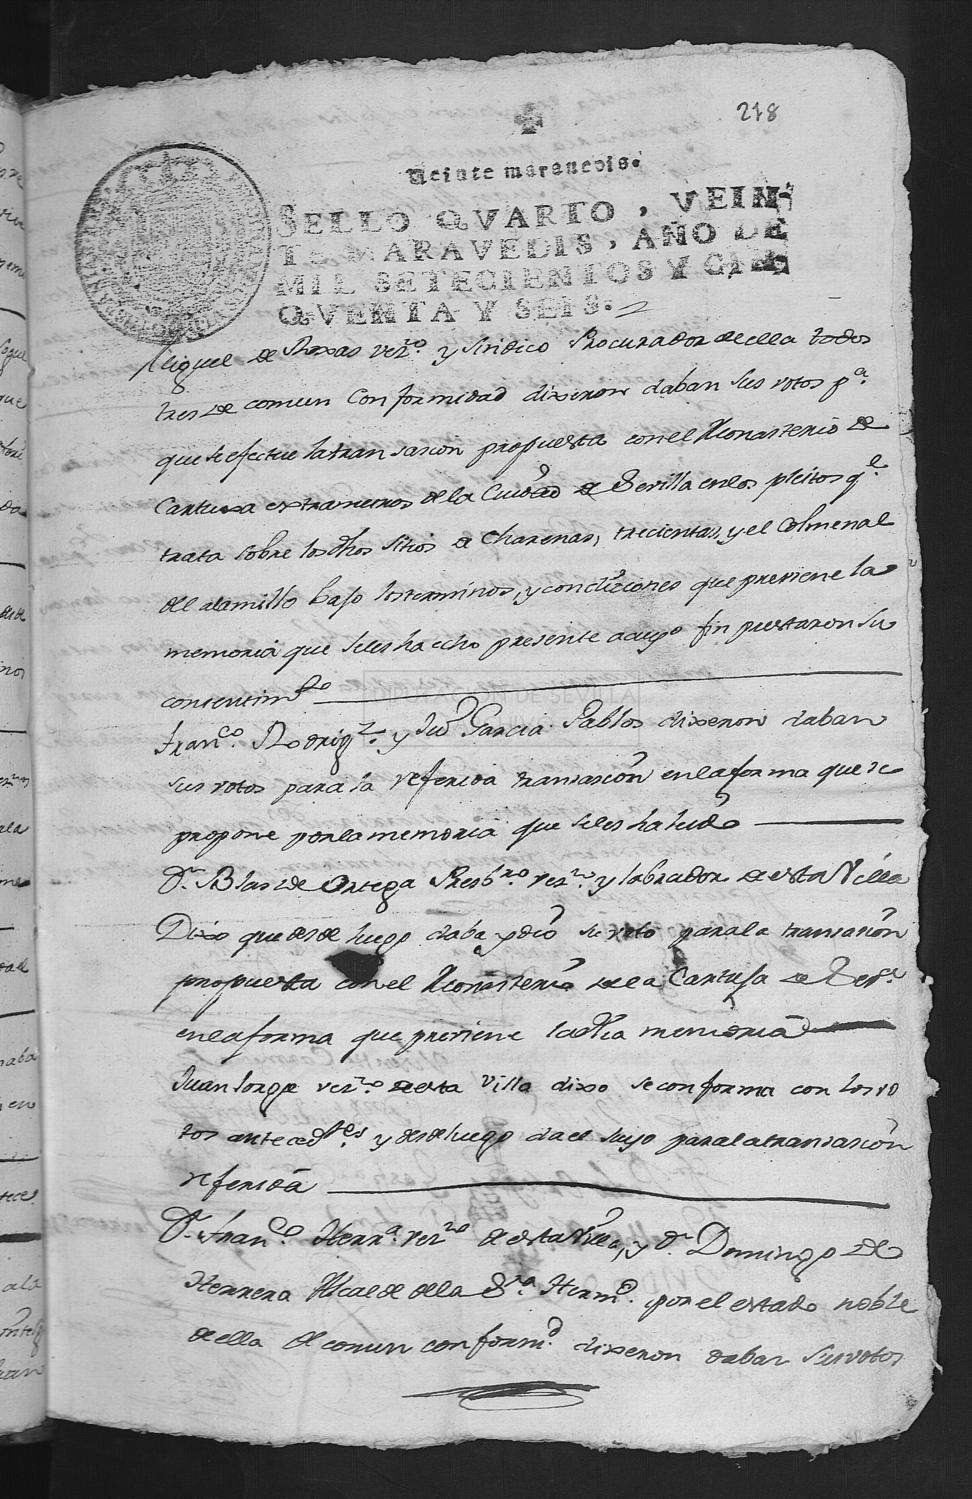 218
Veinte maravedis.
SELLO QVARTO, VEIN-
TE MARAVEDIS, AÑO DE
MIL SETECIENTOS Y CIN-
QVENTA Y SEIS.
Miguel de Roxas vez.no y sindico Procurador de ella todos
tres de comun Conformidad dixeron daban sus votos p.a
que se efectue la transasion propuesta con el Monasterio de
Cartuxa extramuros de la Ciudad de Sevilla en los pleitos q.e
trata sobre los dhos sitios de Charenas, trecientas, y el Colmenal
del alamillo bajo los terminos, y condiciones que previene la
memoria que se les ha echo presente a cuyo fin prestaron su
consentim.to
Fran.co Rodrig.z y Ju.o Garcia Pablos dixeron daban
sus votos para la referida transasion en la forma que se
propone por la memoria que se les ha leido
D.n Blas de Ortega Presb.ro vez.no y labrador de esta Villa
Dixo que desde luego daba y dio su voto para la transasion
propuesta con el Monasterio de la Cartuja de Sev.a
en la forma que previene la dha memoria
Juan Jorge vez.no de esta Villa dixo se conforma con los vo
tos anteced.tes y desde luego da el suyo para la transasion
referida
D.n Fran.co Herr.a vez.no de esta Villa, y D.n Domingo de
Herrera Alcalde de la S.ta Herm.d por el estado noble
de ella de comun conform.d dixeron daban sus votos